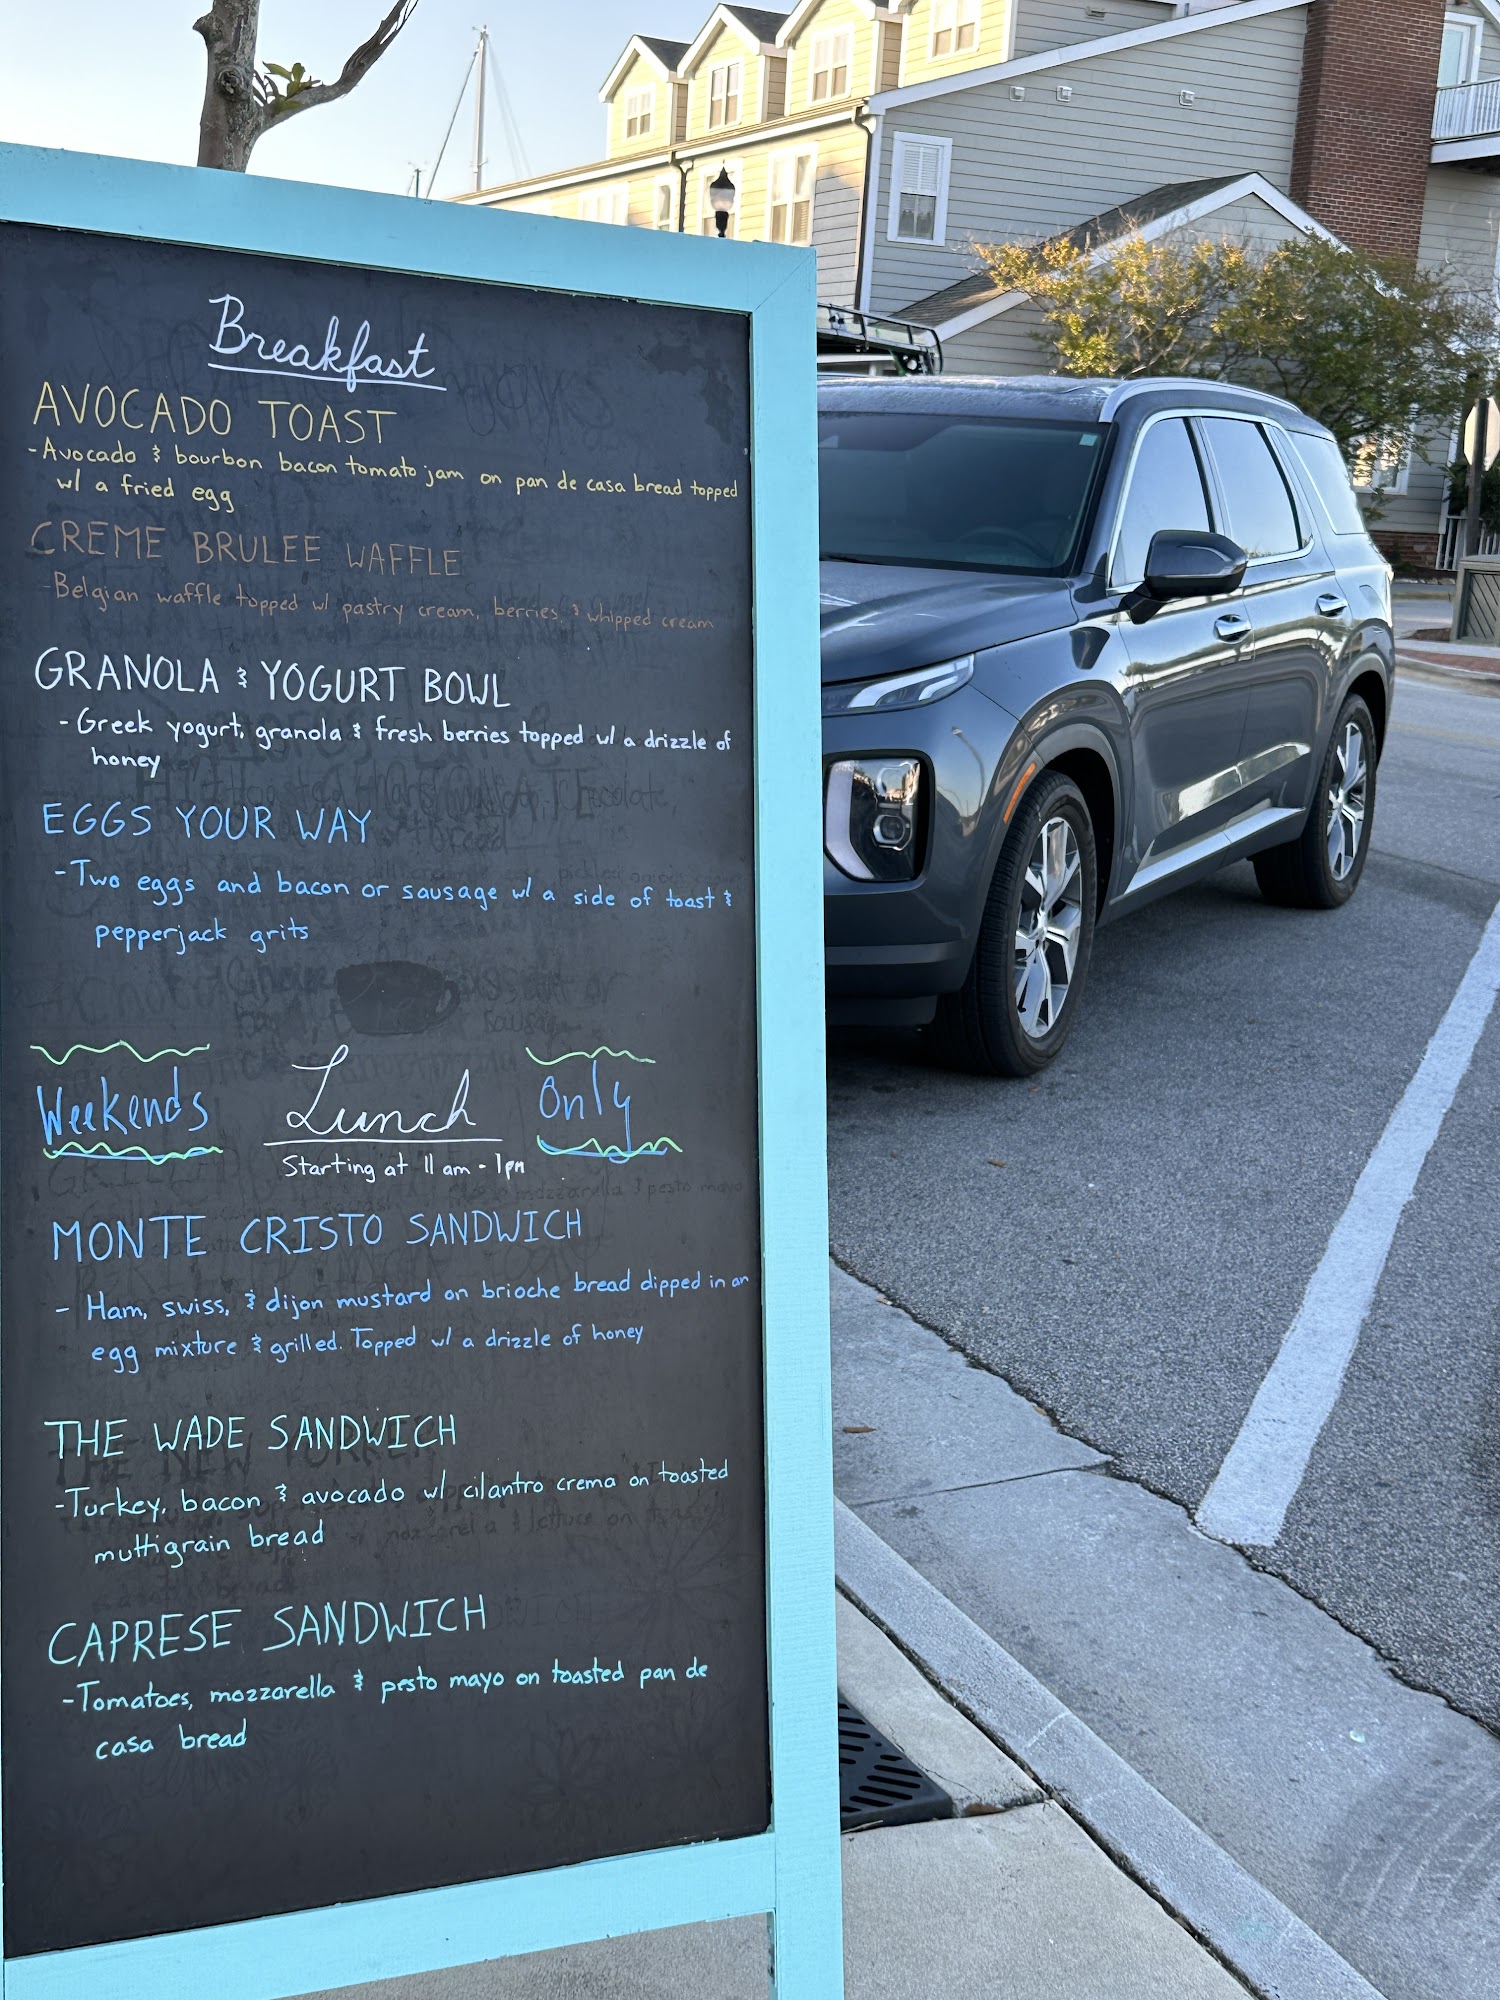 Breakfast
AVOCADO TOAST
-Avocado & bourbon bacon tomato jam on pan de casa bread topped
w/ a fried egg
CREME BRULEE WAFFLE
-Belgian waffle topped w/ pastry cream, berries, & whipped cream
GRANOLA & YOGURT BOWL
-Greek yogurt, granola & fresh berries topped w/ a drizzle of
honey
EGGS YOUR WAY
-Two eggs and bacon or sausage w/ a side of toast &
pepperjack grits
Weekends Lunch Only
Starting at 11 am - 1pm
MONTE CRISTO SANDWICH
- Ham, swiss, & dijon mustard on brioche bread dipped in an
egg mixture & grilled. Topped w/ a drizzle of honey
THE WADE SANDWICH
-Turkey, bacon & avocado w/ cilantro crema on toasted
multigrain bread
CAPRESE SANDWICH
-Tomatoes, mozzarella & pesto mayo on toasted pan de
casa bread